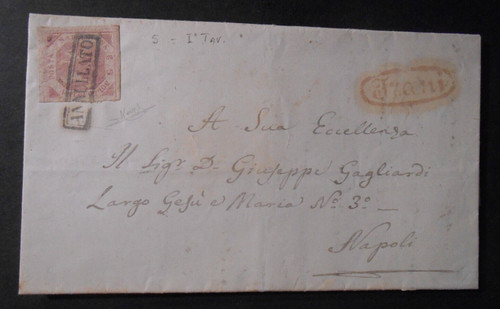 5 - I° Tav.
ANNULLATO
Trani
A Sua Eccellenza
Il Sigr. D. Giuseppe Gagliardi
Largo Gesù e Maria N° 3°
Napoli